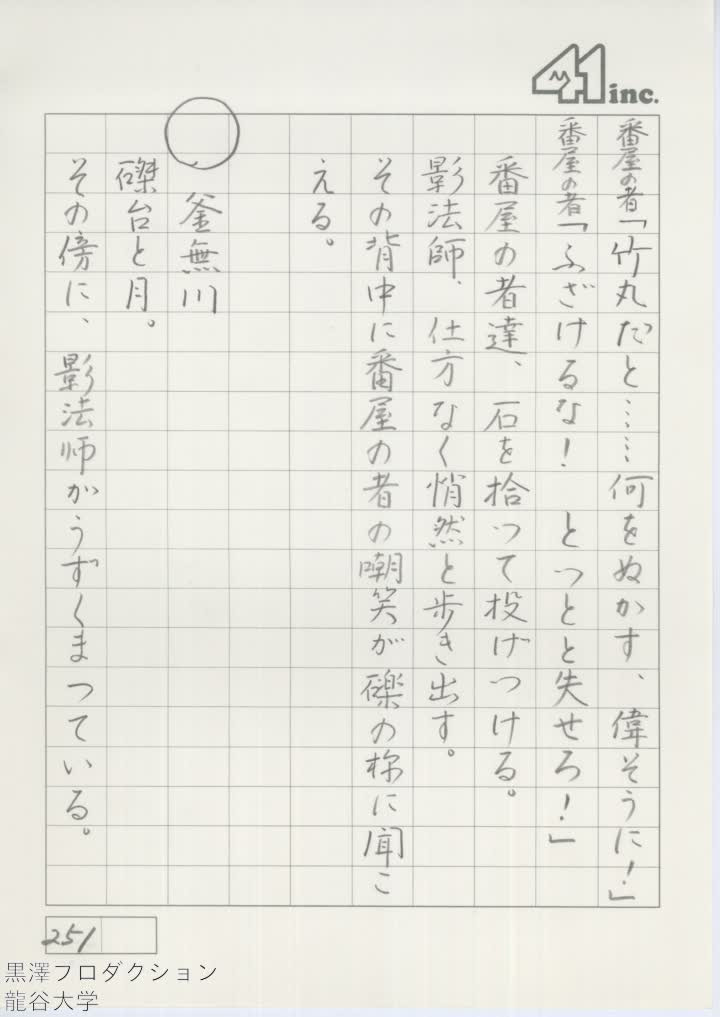 41 inc.
番屋の者「竹丸だと……何をぬかす、偉そうに！」
番屋の者「ふざけるな！　とっとと失せろ！」
番屋の者達、石を拾って投げつける。
影法師、仕方なく悄然と歩き出す。
その背中に番屋の者の嘲笑が礫の様に聞こ
える。
○　釜無川
磔台と月。
その傍に、影法師がうずくまっている。
251
黒澤プロダクション
龍谷大学